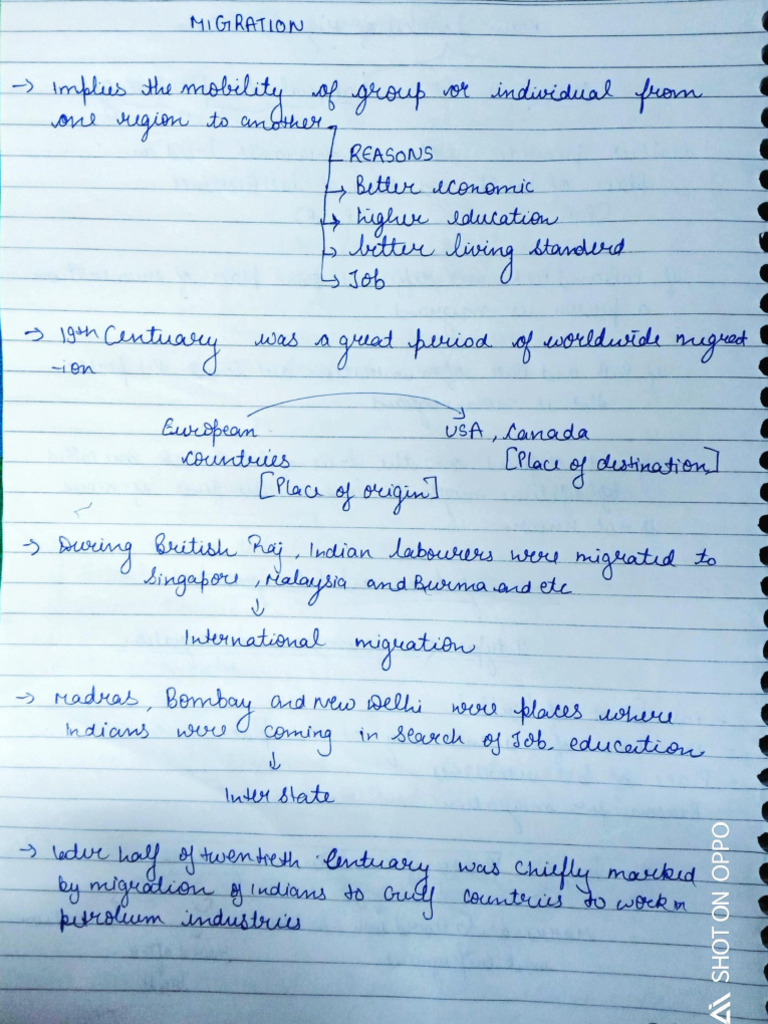 MIGRATION
→ Implies the mobility of group or individual from
one region to another
REASONS
→ Better economic
→ higher education
→ better living standerd
→ Job
→ 19th Centuary was a great period of worldwide migrat
-ion
European USA, Canada
countries [Place of destination]
[Place of origin]
→ During British Raj, Indian labourers were migrated to
Singapore, Malaysia and Burma and etc
↓
International migration
→ Madras, Bombay and New Delhi were places where
Indians were coming in search of Job, education
↓
Inter state
→ half of twentieth Centuary was chiefly marked
by migration of Indians to Gulf countries to work in
petrolium industries
SHOT ON OPPO